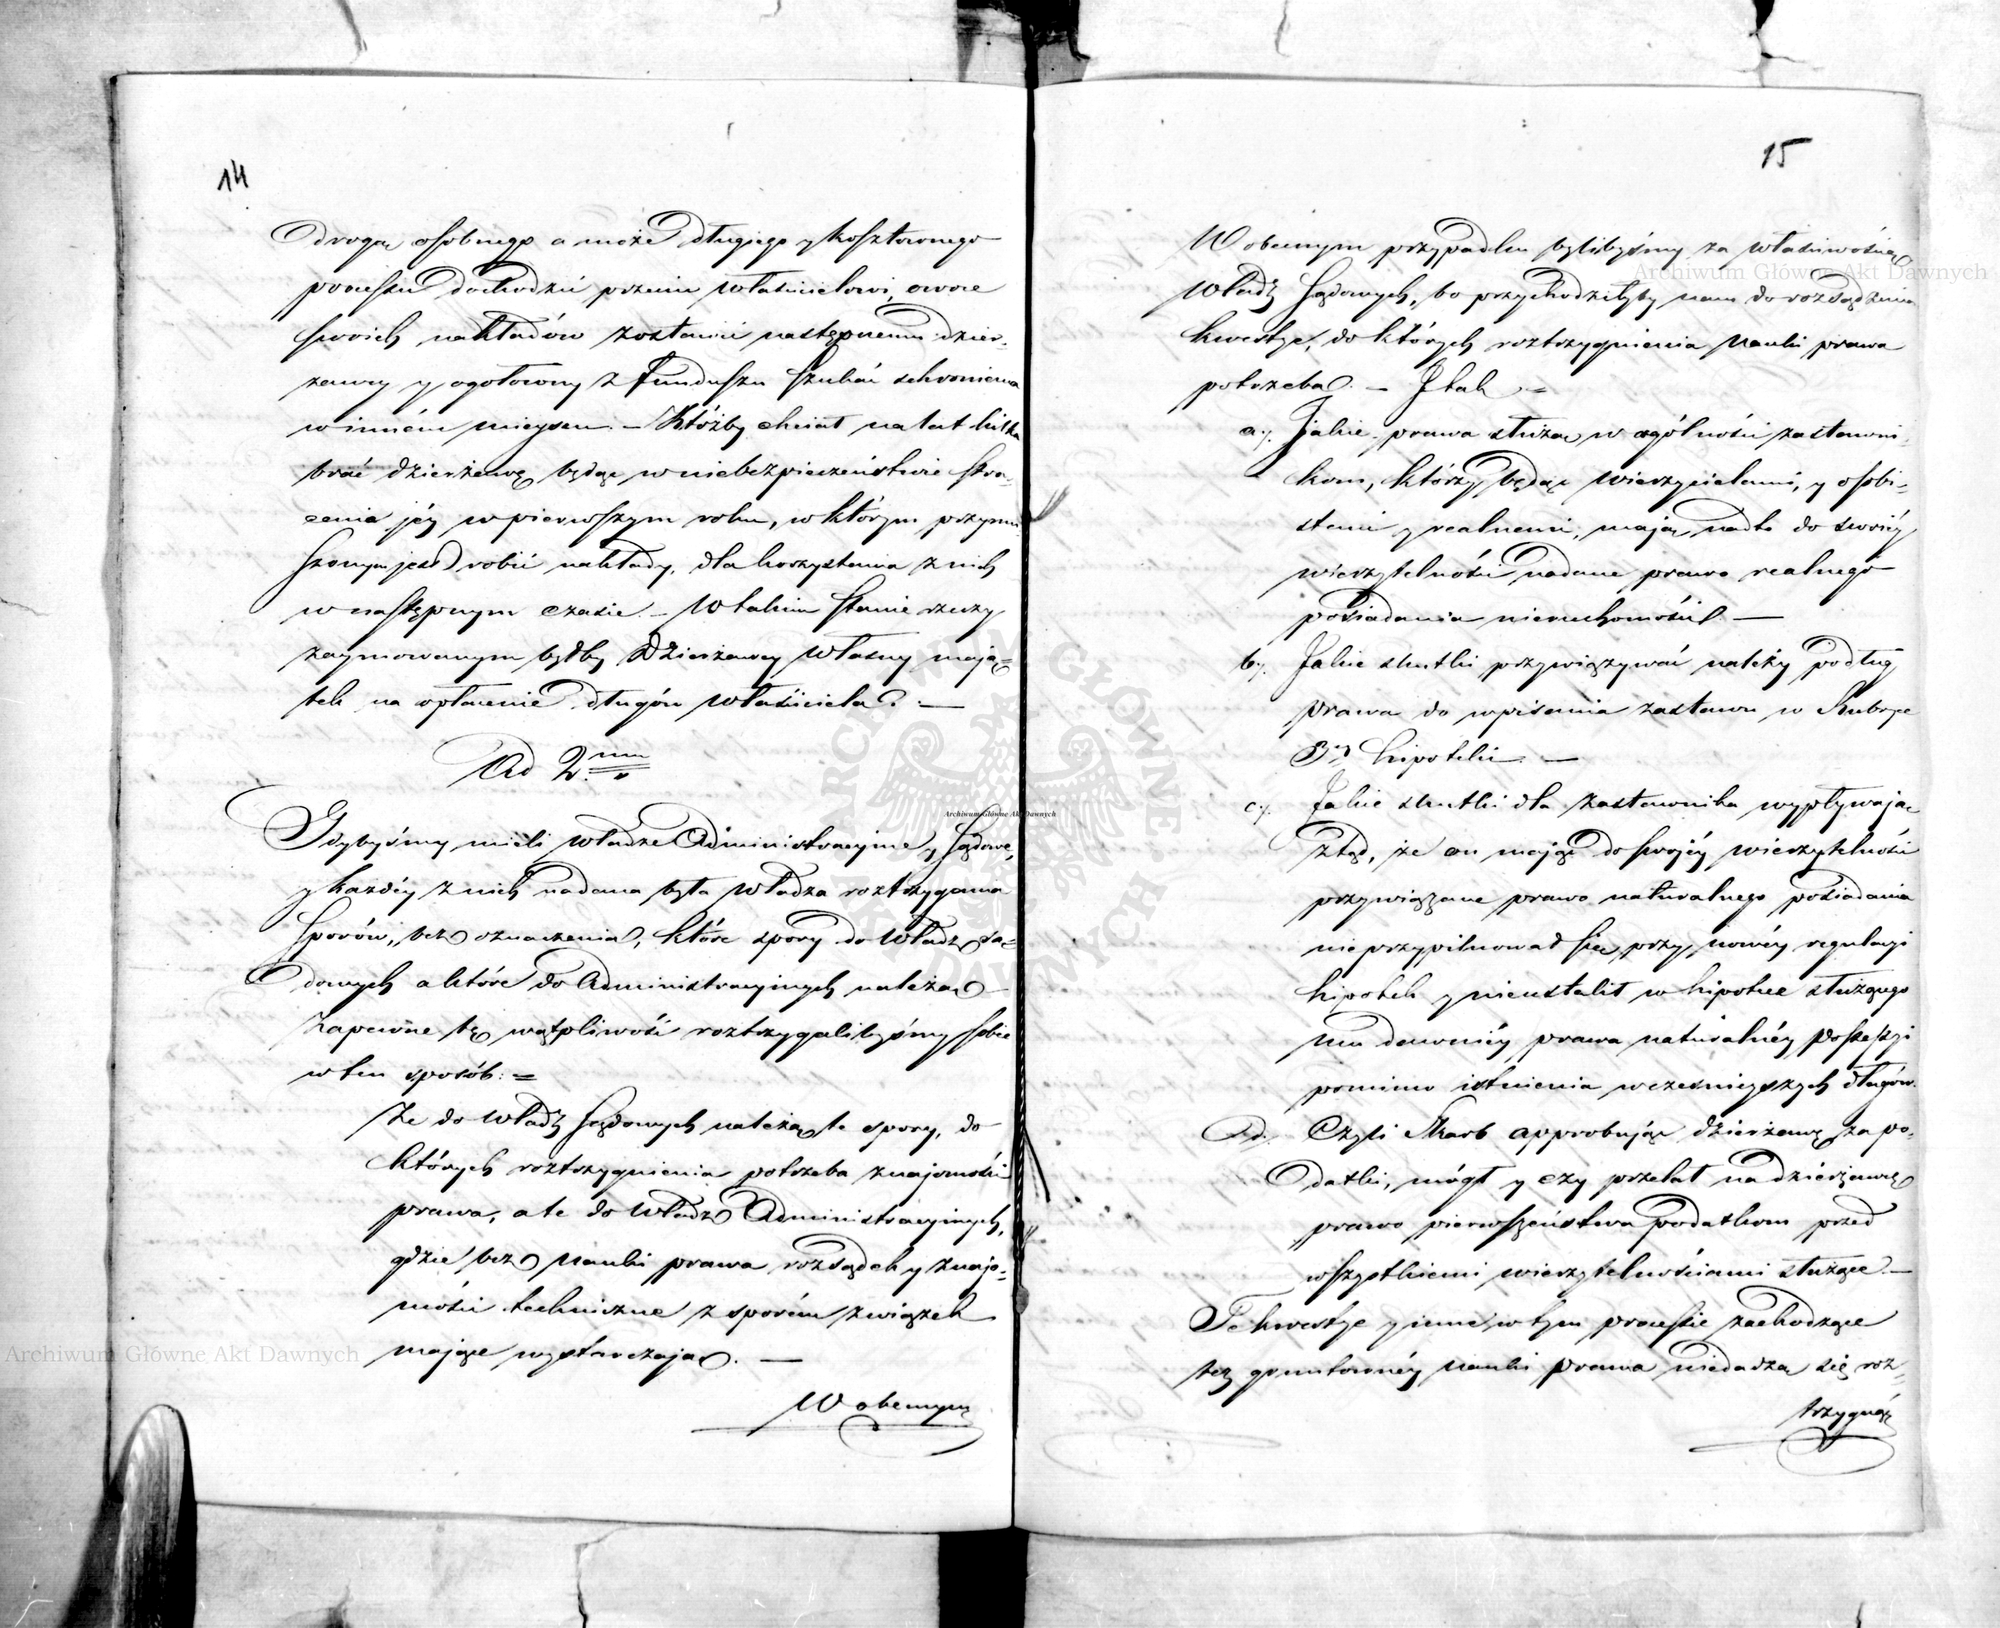 14
drogą osobnego a może długiego y kosztownego
processu dochodzić przeciw właścicielowi, owoce
swoich nakładów zostawić następnemu dzier-
żawcy y ogołocony z funduszu szukać schronienia
w inném mieyscu. – Któżby chciał na lat kilka
brać dzierżawę będąc w niebezpieczeństwie stra-
cenia jéy w pierwszym roku, w którym przymu-
szonym jest robić nakłady, dla korzystania z nich
w następnym czasie. – W takim stanie rzeczy
zaymowanym byłby Dzierżawcy własny mają-
tek na opłacenie długów właściciela. –
Ad 2.um
Gdybyśmy mieli władze Administracyjne y Sądowe,
y każdéy z nich nadana była władza roztrzygania
sporów, bez oznaczenia, które spory do władz są-
dowych a które do Administracyjnych należą
zapewne tę wątpliwość roztrzygalibyśmy sobie
w ten sposób: =
Że do władz sądowych należą te spory, do
których roztrzygnienia potrzeba znajomości
prawa, a te do władz Administracyjnych,
gdzie bez nauki prawa rozsądek y znajo-
mości techniczne z sporem związek
mające wystarczają. –
W obecnym
15
W obecnym przypadku bylibyśmy za właściwością
władz Sądowych, bo przychodziłyby nam do rozsądzenia
kwestye, do których roztrzygnienia nauki prawa
potrzeba. – I tak =
a). Jakie prawa służą w ogólności zastawni-
kom, którzy będąc wierzycielami, y osobi-
stemi y realnemi, mają nadto do swoiéy
wierzytelności nadane prawo realnego
posiadania nieruchomości –
b). Jakie skutki przywiązywać należy podług
prawa do wpisania zastawu w Rubryce
3éy hipoteki. –
c). Jakie skutki dla zastawnika wypływają
ztąd, że on mając do swojéy wierzytelności
przywiązane prawo naturalnego posiadania
nie przypilnował się przy nowéy regulacyi
hipotek y nieustalił w hipotece służącego
mu dawniéy prawa naturalnéy possessyi
pomimo istnienia wcześnieyszych długów.
d. Czyli Skarb approbując dzierżawę za po-
datki, mógł y czy przelał na dzierżawcę
prawo pierwszeństwa podatkom przed
wszystkiemi wierzytelnościami służące. –
Te kwestye y inne w tym processie zachodzące
bez gruntownéy nauki prawa niedadzą się roz-
trzygnąć
Archiwum Główne Akt Dawnych
Archiwum Główne Akt Dawnych
Archiwum Główne Akt Dawnych
ARCHIWUM GŁÓWNE AKT DAWNYCH